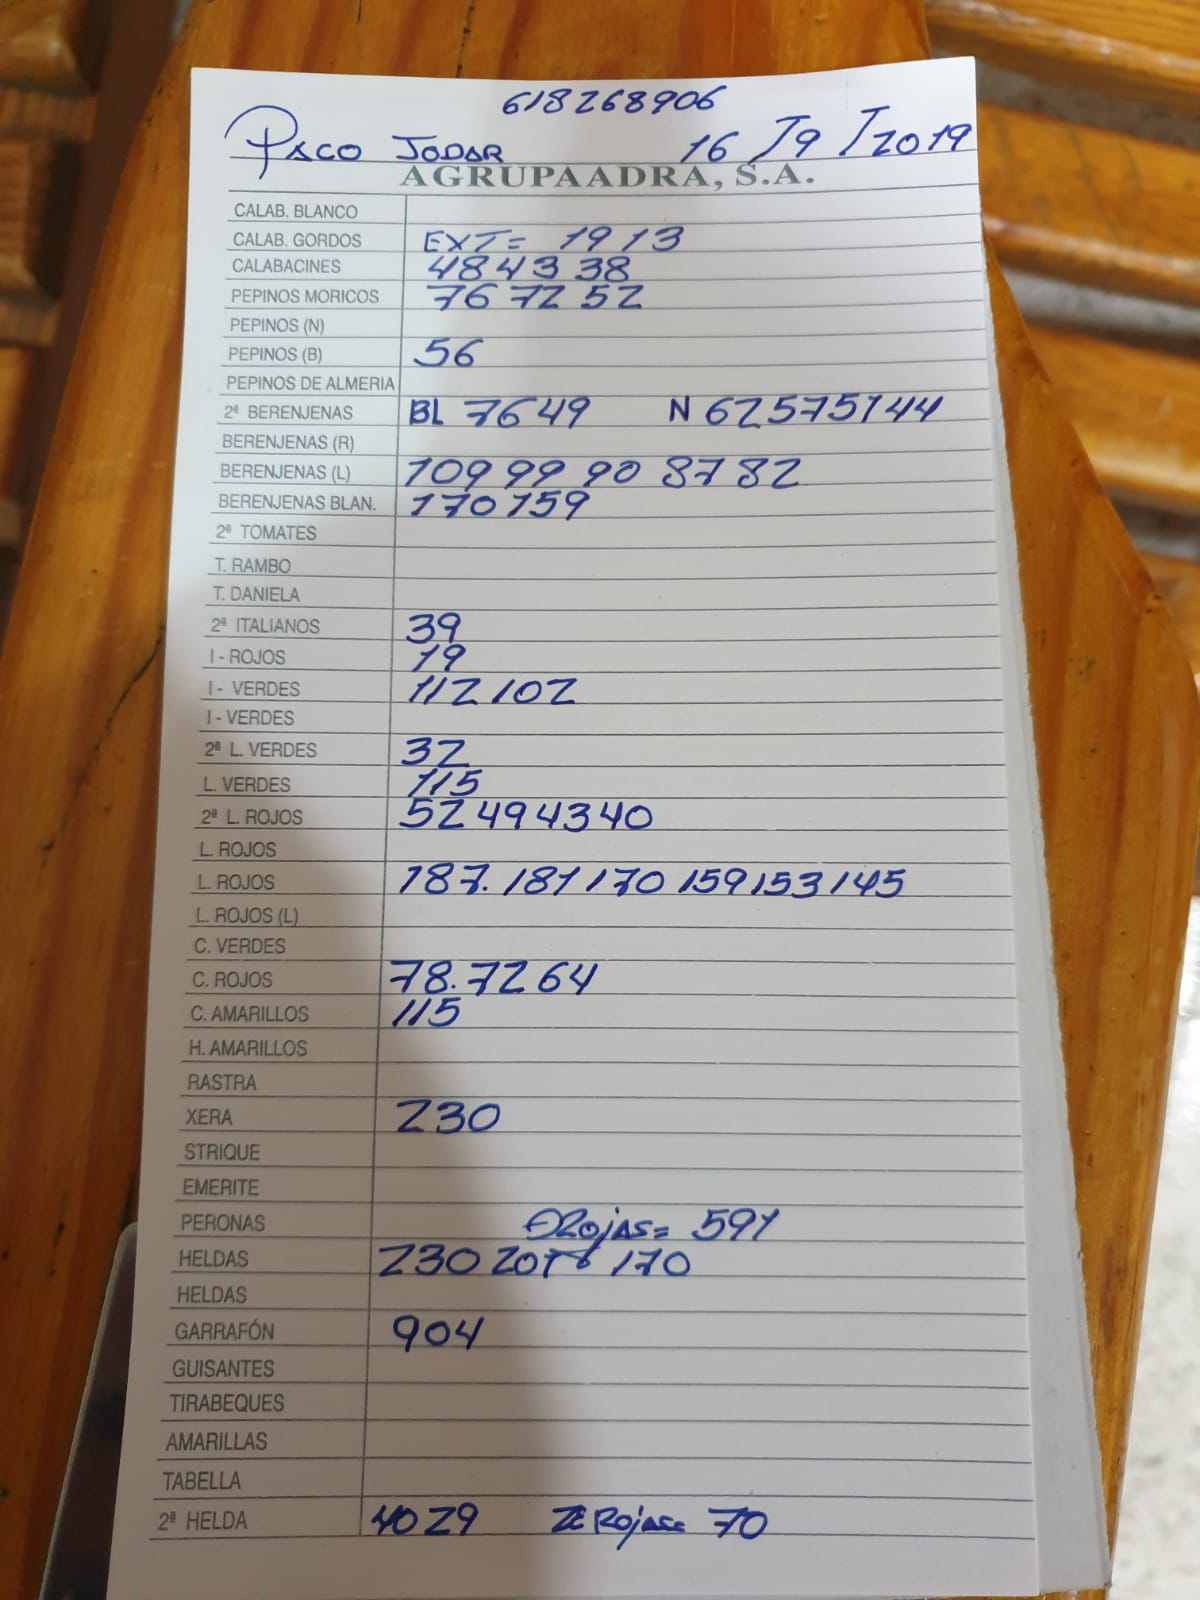 618268906
PACO JODAR 16/9/2019
AGRUPAADRA, S.A.
CALAB. BLANCO
CALAB. GORDOS EXT= 19 13
CALABACINES 48 43 38
PEPINOS MORICOS 76 72 52
PEPINOS (N)
PEPINOS (B) 56
PEPINOS DE ALMERIA
2ª BERENJENAS BL 76 49 N 62 57 51 44
BERENJENAS (R)
BERENJENAS (L) 109 99 90 87 82
BERENJENAS BLAN. 170 159
2ª TOMATES
T. RAMBO
T. DANIELA
2ª ITALIANOS 39
I - ROJOS 19
I - VERDES 112 102
I - VERDES
2ª L. VERDES 32
L. VERDES 115
2ª L. ROJOS 52 49 43 40
L. ROJOS
L. ROJOS 187. 181 170 159 153 145
L. ROJOS (L)
C. VERDES
C. ROJOS 78. 72 64
C. AMARILLOS 115
H. AMARILLOS
RASTRA
XERA 230
STRIQUE
EMERITE
PERONAS ROJAS= 591
HELDAS 230 170
HELDAS
GARRAFÓN 904
GUISANTES
TIRABEQUES
AMARILLAS
TABELLA
2ª HELDA 40 29 70